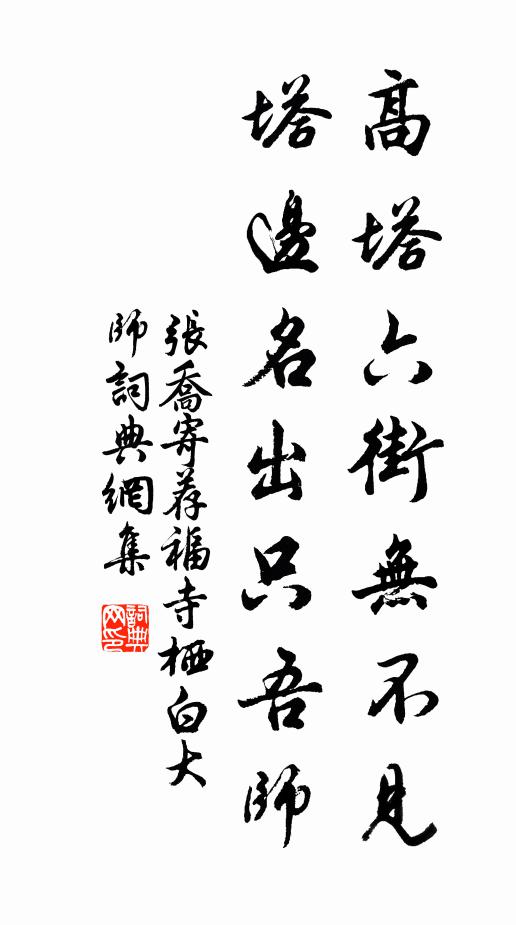 高塔六街無不見
塔邊名出只吾師
張喬寄荐福寺栖白大
師詞典網集
詞典
网印